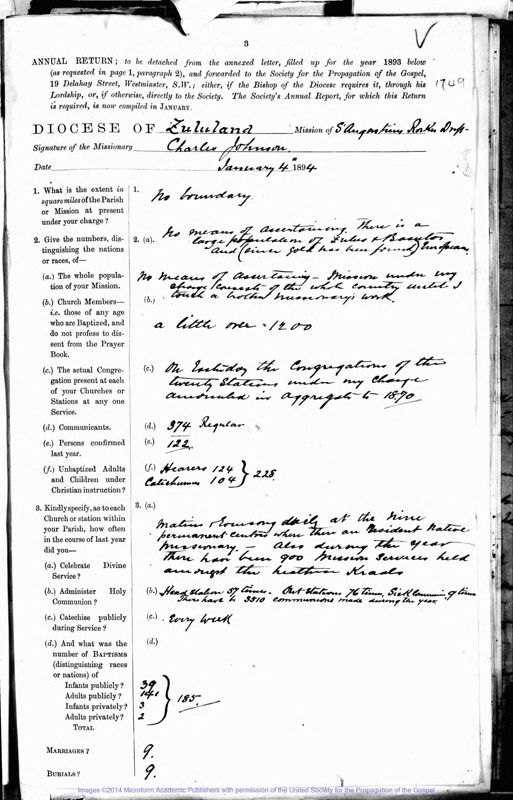 3
V
ANNUAL RETURN; to be detached from the annexed letter, filled up for the year 1893 below
(as requested in page 1, paragraph 2), and forwarded to the Society for the Propagation of the Gospel,
19 Delahay Street, Westminster, S.W.; either, if the Bishop of the Diocese requires it, through his
Lordship, or, if otherwise, directly to the Society. The Society's Annual Report, for which this Return
is required, is now compiled in JANUARY.
1749
DIOCESE OF Zululand Mission of St Augustines Rorkes Drift
Signature of the Missionary Charles Johnson.
Date January 4th 1894
1. What is the extent in
square miles of the Parish
or Mission at present
under your charge?
1. No boundary
2. Give the numbers, dis-
tinguishing the nations
or races, of—
2. (a). No means of ascertaining. There is a
large population of Zulus & Basutos
and (since gold has been found) Europeans
(a.) The whole popula-
tion of your Mission.
No means of ascertaining - Mission under my
charge consists of the whole country until I
touch a brother missionary's work.
(b.) Church Members—
i.e. those of any age
who are Baptized, and
do not profess to dis-
sent from the Prayer
Book.
(b.)
a little over - 1200
(c.) The actual Congre-
gation present at each
of your Churches or
Stations at any one
Service.
(c.) On the Congregations of the
twenty Stations under my charge
amounted in aggregate to 1870
(d.) Communicants.
(d.) 374 Regular
(e.) Persons confirmed
last year.
(e.) 122
(f.) Unbaptized Adults
and Children under
Christian instruction?
(f.) Hearers 124
Catechumens 104 } 228
3. Kindly specify, as to each
Church or station within
your Parish, how often
in the course of last year
did you—
3. (a.)
Matins & Evensong daily at the Nine
permanent centres where there are Resident Native
Missionary. Also during the year
there have been 900 Mission Services held
amongst the heathen Kraals
(a.) Celebrate Divine
Service?
(b.) Administer Holy
Communion?
(b.) Head station 57 times. Out Stations 76 times, Sick Commun. 9 times
There have been 3310 communions made during the year
(c.) Catechise publicly
during Service?
(c.) Every week
(d.) And what was the
number of BAPTISMS
(distinguishing races
or nations) of
(d.)
Infants publicly? 39
Adults publicly? 141
Infants privately? 3
Adults privately? 2
TOTAL
185.
MARRIAGES? 9.
BURIALS? 9.
Images ©2014 Microform Academic Publishers with permission of the United Society for the Propagation of the Gospel